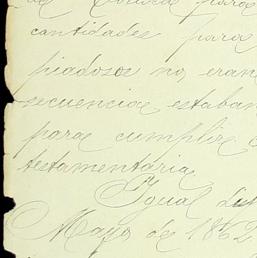 de para
cantidades para
piadosos no eran
secuencia estaban
para cumplir
testamentaria
Igual
Mayo de 1862